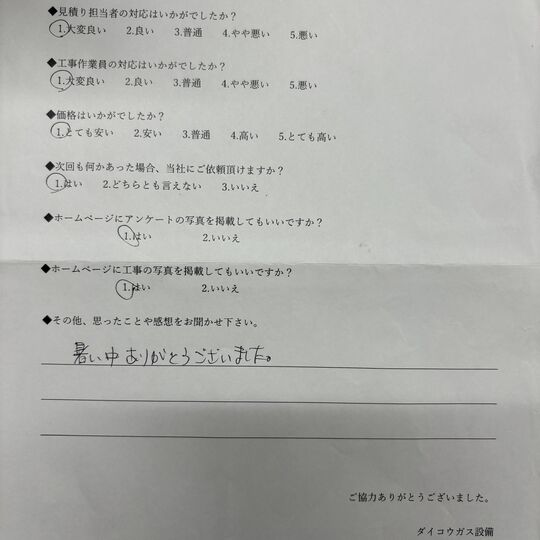 ◆見積り担当者の対応はいかがでしたか？
1.大変良い 2.良い 3.普通 4.やや悪い 5.悪い
◆工事作業員の対応はいかがでしたか？
1.大変良い 2.良い 3.普通 4.やや悪い 5.悪い
◆価格はいかがでしたか？
1.とても安い 2.安い 3.普通 4.高い 5.とても高い
◆次回も何かあった場合、当社にご依頼頂けますか？
1.はい 2.どちらとも言えない 3.いいえ
◆ホームページにアンケートの写真を掲載してもいいですか？
1.はい 2.いいえ
◆ホームページに工事の写真を掲載してもいいですか？
1.はい 2.いいえ
◆その他、思ったことや感想をお聞かせ下さい。
暑い中ありがとうございました。
ご協力ありがとうございました。
ダイコウガス設備